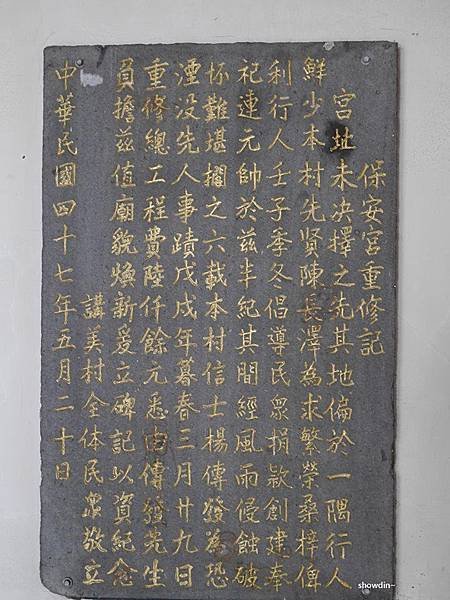 保安宮重修記
宮址未決擇之先其地偏於一隅行人
鮮少本村先賢陳長澤為求繁榮桑梓俾
利行人壬子季冬倡導民眾捐款創建奉
祀連元帥於茲半紀其間經風雨侵蝕破
坏難堪擱之六載本村信士楊傳發為恐
湮没先人事蹟戊戌年暮春三月廿九日
重修總工程費陸仟餘元悉由傳發先生
負擔茲值廟貌煥新爰立碑記以資紀念
講美村全体民眾敬立
中華民國四十七年五月二十日
showdin~